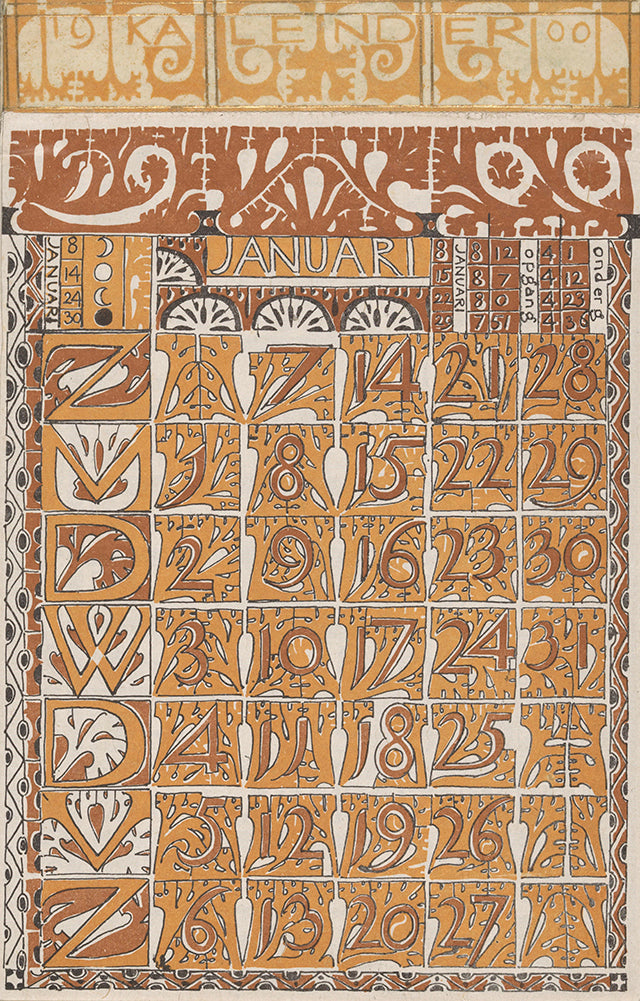 19 KALENDER 00
JANUARI
8
14
24
30
JANUARI
8 15 22 29
JANUARI
8 12
8 7
8 0
7
opgang
4 1
4 12
4 23
4
onderg
Z 7 14 21 28
M 1 8 15 22 29
D 2 9 16 23 30
W 3 10 17 24 31
D 4 11 18 25
V 5 12 19 26
Z 6 13 20 27